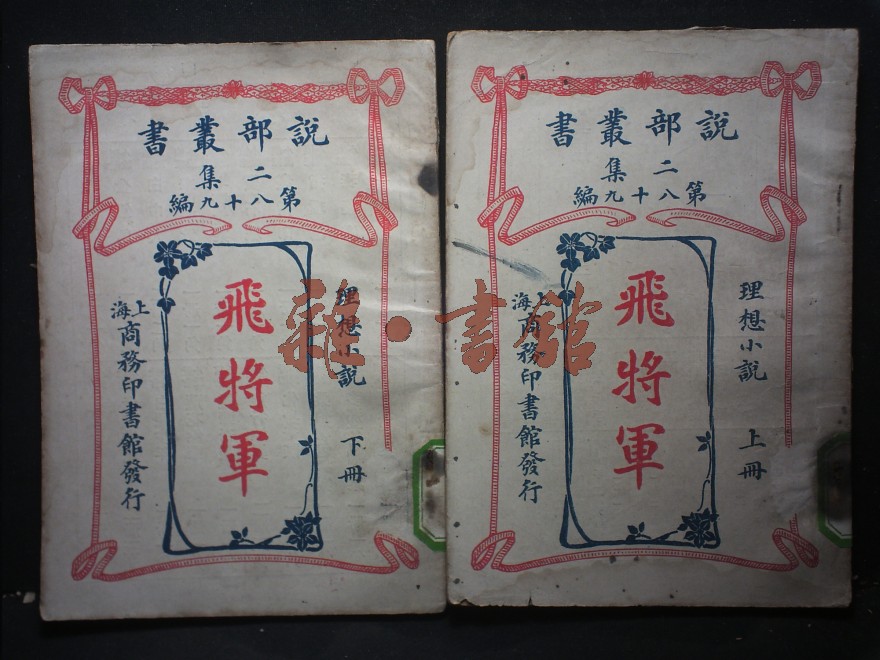 說部叢書
二集
第八十九編
理想小說 上冊
飛將軍
上海商務印書館發行
說部叢書
二集
第八十九編
理想小說 下冊
飛將軍
上海商務印書館發行
雜·書館